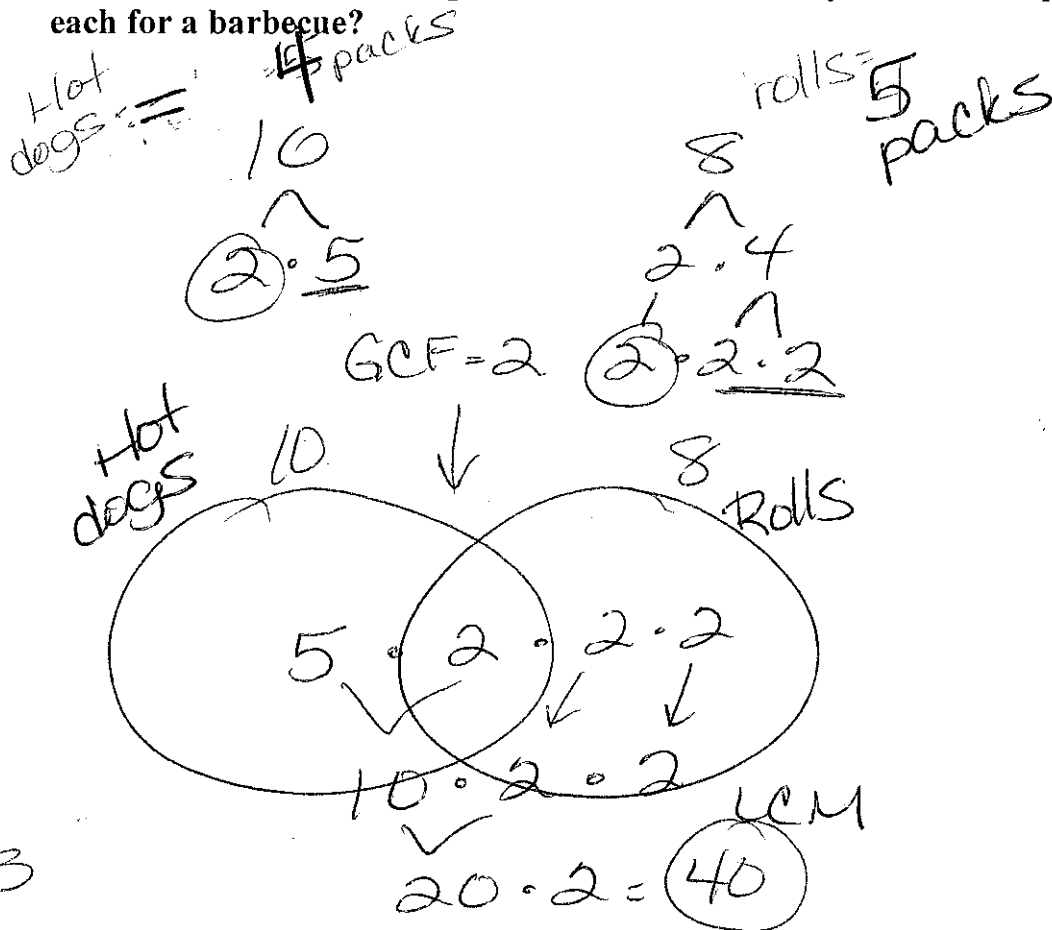 each for a barbecue?
Hot dogs = 4 packs
rolls = 5 packs
10
8
2 · 5
2 · 4
GCF = 2
2 · 2 · 2
Hot dogs
10
8
Rolls
5 · 2 · 2 · 2
10 · 2 · 2
LCM
3
20 · 2 = 40